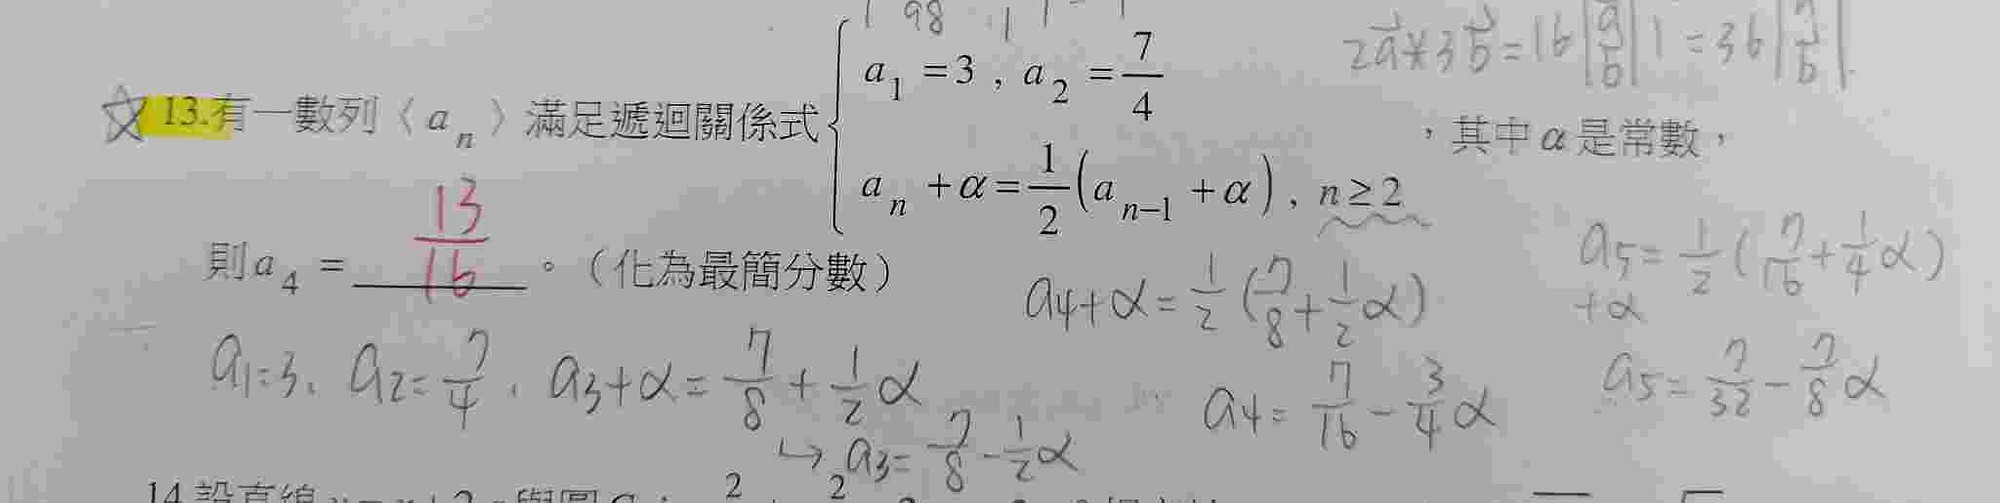 98
2a⃗×3b⃗=16|a⃗/b⃗|1=36|a⃗/b⃗|
☆13.有一數列〈a_n〉滿足遞迴關係式{a_1=3,a_2=7/4
a_n+α=1/2(a_{n-1}+α),n≥2
,其中α是常數,
則a_4=13/16。(化為最簡分數)
a_1=3、a_2=7/4,a_3+α=7/8+1/2α
↳a_3=7/8-1/2α
a_4+α=1/2(7/8+1/2α)
a_4=7/16-3/4α
a_5=1/2(7/16+1/4α)
+α
a_5=7/32-7/8α
14.設直線